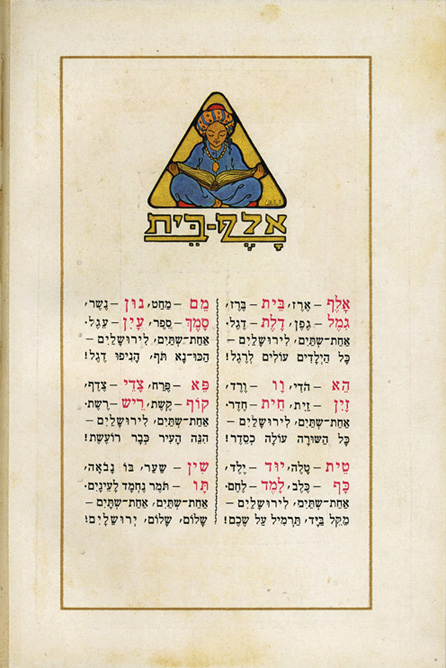 אָלֶף-בֵּית
אָלֶף – אֶרֶז, בֵּית – בֶּרֶז,
גִּמֶל – גֶּפֶן, דָּלֶת – דֶּגֶל.
אַחַת־שְׁתַּיִם, לִירוּשָׁלַיִם –
כָּל הַיְלָדִים עוֹלִים לָרֶגֶל!
הֵא – הֹדִי, וָו – וֶרֶד,
זַיִן – זַיִת, חֵית – חֶדֶר.
אַחַת־שְׁתַּיִם, לִירוּשָׁלַיִם –
כָּל הַשּׁוּרָה עוֹלָה כַסֵּדֶר!
טֵית – טָלֶה, יוּד – יֶלֶד,
כָּף – כֶּלֶב, לָמֶד – לֶחֶם.
אַחַת־שְׁתַּיִם, לִירוּשָׁלַיִם –
מַקֵּל בַּיָּד, תַּרְמִיל עַל שְׁכֶם!
מֵם – מַחַט, נוּן – נֶשֶׁר,
סָמֶךְ – סֵפֶר, עַיִן – עֵגֶל.
אַחַת־שְׁתַּיִם, לִירוּשָׁלַיִם –
הַכּוּ־נָא תֹּף, הָנִיפוּ דֶּגֶל!
פֵּא – פֶּרַח, צָדֵי – צֶדֶף,
קוֹף – קֶשֶׁת, רֵישׁ – רֶשֶׁת.
אַחַת־שְׁתַּיִם, לִירוּשָׁלַיִם –
הִנֵּה הָעִיר כְּבָר רוֹעֶשֶׁת!
שִׁין – שַׁעַר, בּוֹ נָבֹאָה,
תָּו – תֹּמֶר נֶחְמָד לָעֵינַיִם.
אַחַת־שְׁתַּיִם, אַחַת־שְׁתַּיִם –
שָׁלוֹם, שָׁלוֹם, יְרוּשָׁלַיִם!